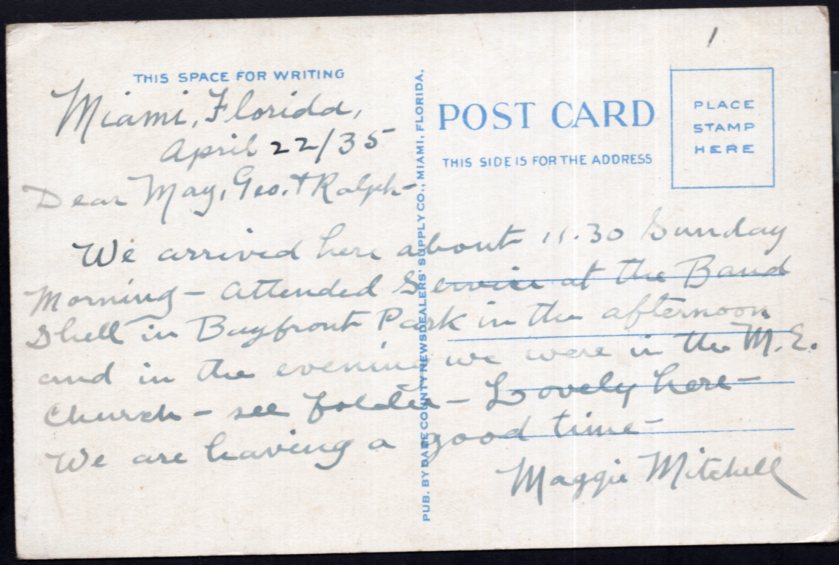 1
THIS SPACE FOR WRITING
POST CARD
THIS SIDE IS FOR THE ADDRESS
PLACE
STAMP
HERE
PUB. BY DADE COUNTY NEWSDEALERS' SUPPLY CO., MIAMI, FLORIDA.
Miami, Florida,
April 22/35
Dear May, Geo. + Ralph-
We arrived here about 11.30 Sunday
Morning - attended Service at the Band
Shell in Bayfront Park in the afternoon
and in the evening we were in the M.E.
Church - see folder - Lovely here -
We are having a good time -
Maggie Mitchell